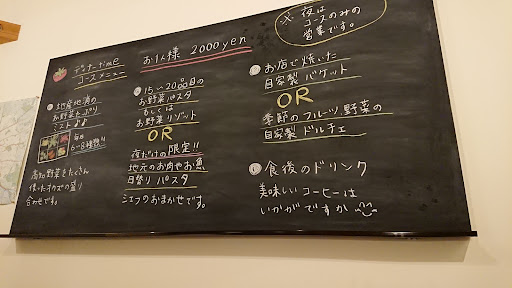 ディナーtime
コースメニュー
お1人様 2000yen
※夜は
コースのみの
営業です。
地産地消の
お野菜たっぷり
ミスト♪♪
毎日
6~8種類!!
高知野菜をたくさん
使った
の盛り
合わせです。
15~20品目の
お野菜パスタ
もしくは
お野菜リゾット
OR
夜だけの限定!!
地元のお肉やお魚
日替りパスタ
シェフのおまかせです。
お店で焼いた
自家製バゲット
OR
季節のフルーツ、野菜の
自家製ドルチェ
食後のドリンク
美味しいコーヒーは
いかがですか